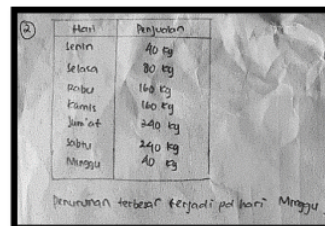 2 Hari Penjualan
Senin 40 kg
Selasa 80 kg
Rabu 160 kg
Kamis 160 kg
Jum'at 240 kg
Sabtu 240 kg
Minggu 40 kg
Penurunan terbesar terjadi pd hari Minggu